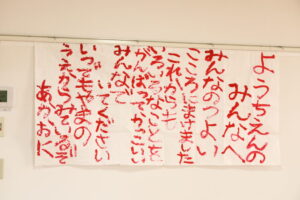 ようちえんの
みんなへ
みんなのつよい
こころにまけました
これからも
いろいろなことを
がんばってかっこいい
みんなで
いてください
いつでもやまの
うえからみているぞ
あかおに